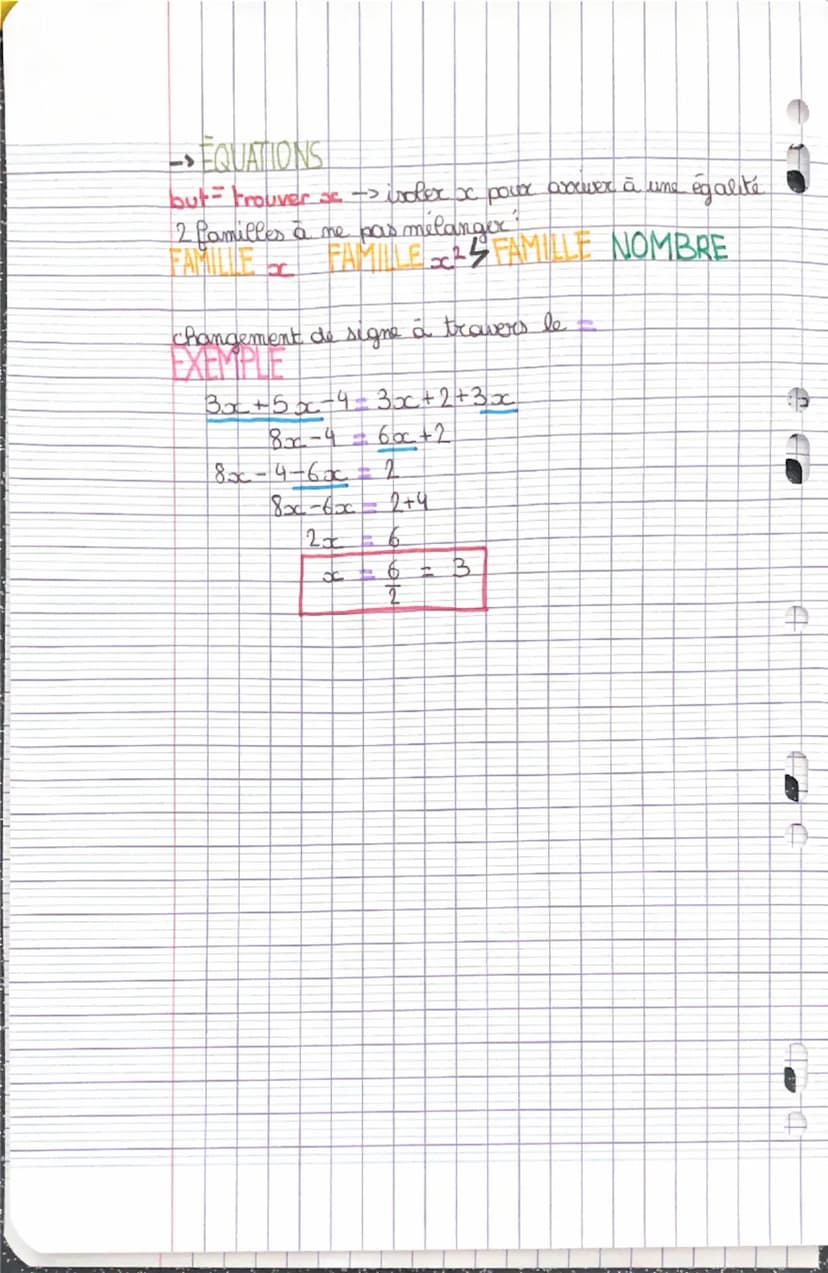 → ÉQUATIONS
but = trouver x → isoler x pour arriver à une égalité
2 familles à ne pas mélanger :
FAMILLE x FAMILLE x² ↳ FAMILLE NOMBRE
changement de signe à travers le =
EXEMPLE
3x + 5x - 4 = 3x + 2 + 3x
8x - 4 = 6x + 2
8x - 4 - 6x = 2
8x - 6x = 2 + 4
2x = 6
x = 6/2 = 3